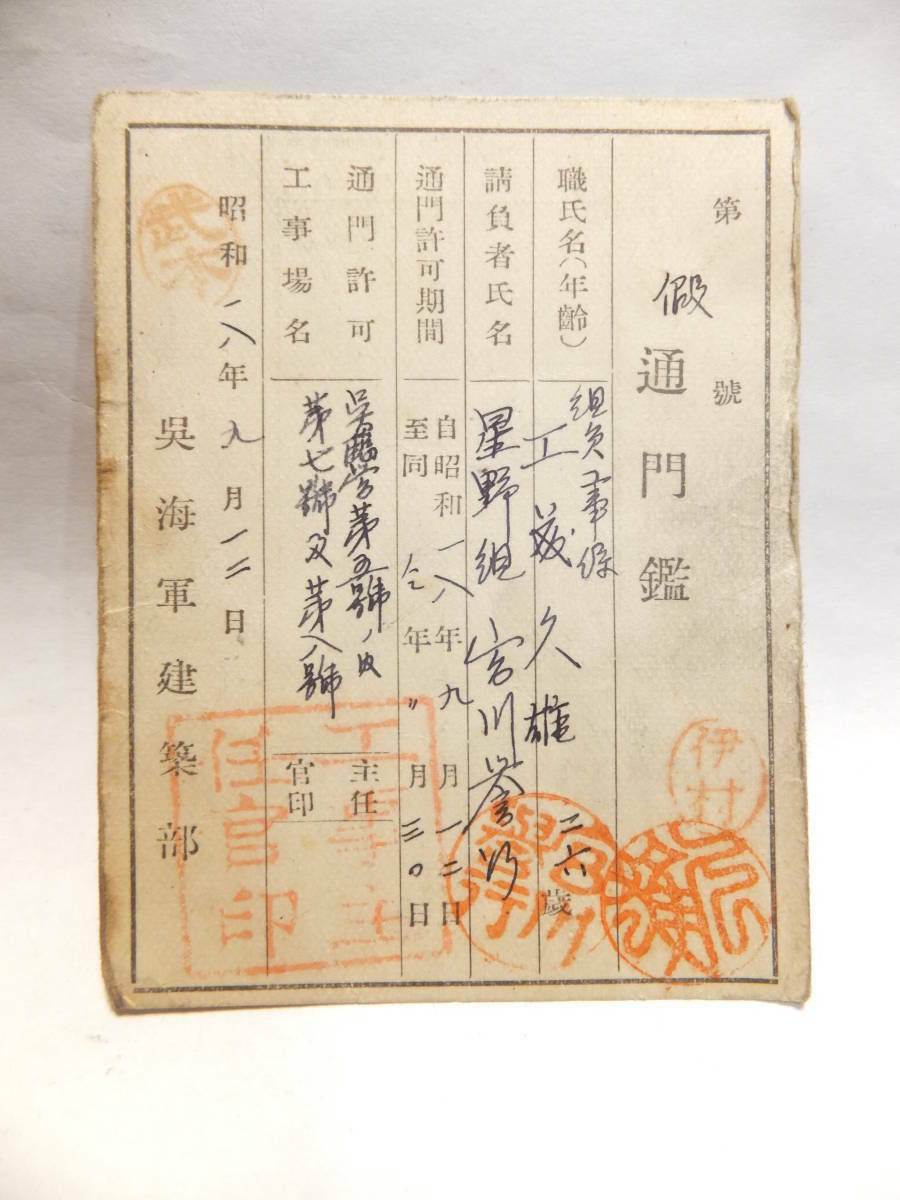 第 號
假 通門鑑
職氏名(年齡) 組員 事係
工藤 久雄 二六歲
請負者氏名 星野組 宮川
通門許可期間 自昭和一八年九月一二日
至同 仝年〃月三〇日
通門許可 第五號 主任
工事場名 第七號及第八號 官印
昭和一八年九月一二日
吳海軍建築部
伊村
武本
工事主任官印